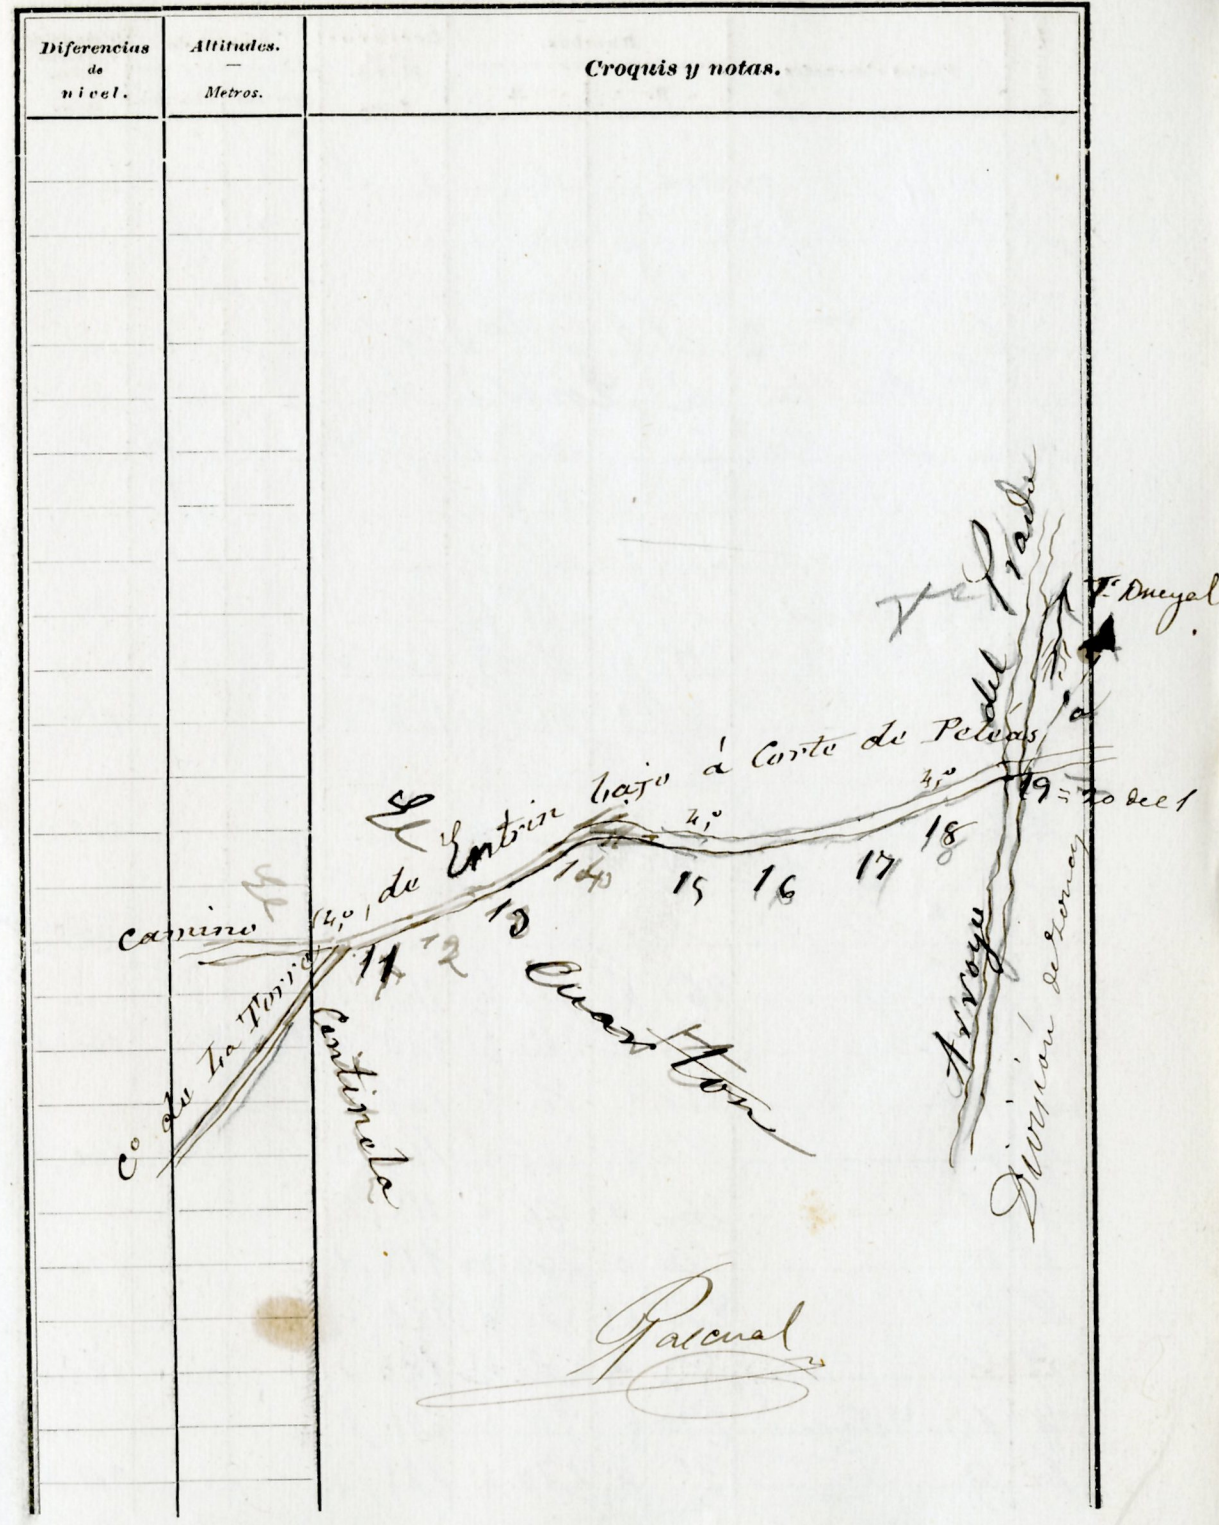 Diferencias
de
nivel.
Altitudes.
Metros.
Croquis y notas.
Camino de Entrin bajo á Corte de Peleás
El
4,º
4,º
4,º
11
12
13
14
15
16
17
18
19 = 20 del 1
Cº de La Torre
Centinela
Cuarton
Arroyo del Prado
División de zonas
Pascual